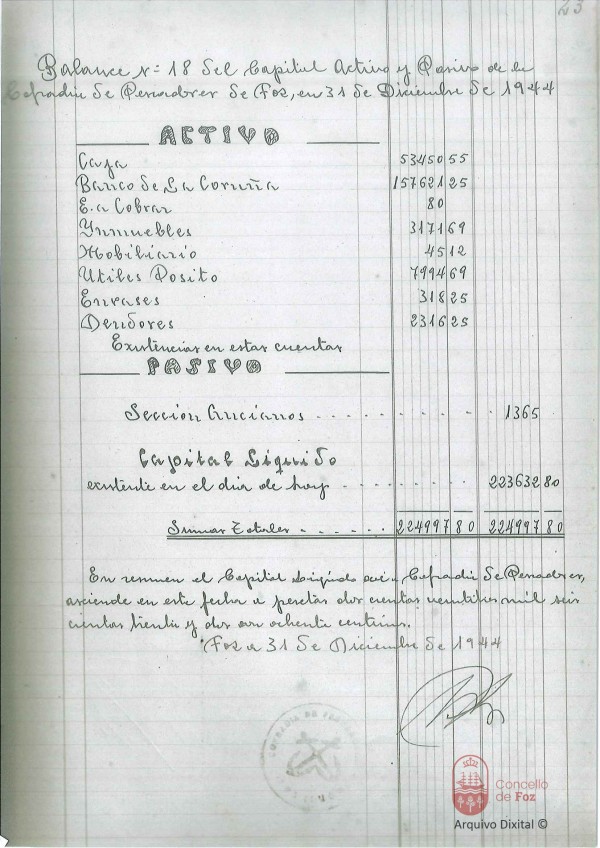 43
Balance nº 18 Del Capital Activo y Pasivo de la
Cofradia de Pescadores de Foz, en 31 de Diciembre de 1944
ACTIVO
Caja 53450 55
Banco de La Coruña 157621 25
E. a Cobrar 80
Ynmuebles 3171 69
Mobiliario 451 2
Utiles Posito 7994 69
Envases 318 25
Deudores 2316 25
Existencias en estas cuentas
PASIVO
Seccion Ancianos - - - - - - - - - 1365
Capital Liquido
existente en el dia de hoy - - - - - - - - 223632 80
Sumas Totales - - - - - - 224997 80 224997 80
En resumen el Capital Liquido de la Cofradia de Pescadores,
asciende en esta fecha a pesetas dos cientas ventitres mil seis
cientas treinta y dos con ochenta centimos.
Foz a 31 de Diciembre de 1944
COFRADIA DE
Concello
de Foz
Arquivo Dixital ©